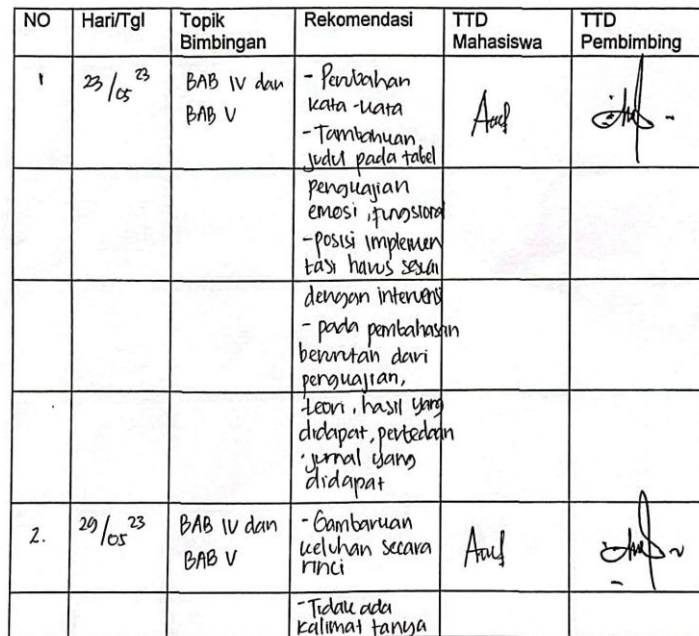 NO Hari/Tgl Topik Bimbingan Rekomendasi TTD Mahasiswa TTD Pembimbing
1 23/05 23 BAB IV dan BAB V - Perubahan
kata-kata
- Tambahkan
judul pada tabel
pengkajian
emosi, fungsional
- posisi implemen
tasi harus sesuai
dengan intervensi
- pada pembahasan
berurutan dari
pengkajian,
teori, hasil yang
didapat, perbedaan
jurnal yang
didapat
2. 29/05 23 BAB IV dan BAB V - Gambarkan
keluhan secara
rinci
- Tidak ada
kalimat tanya